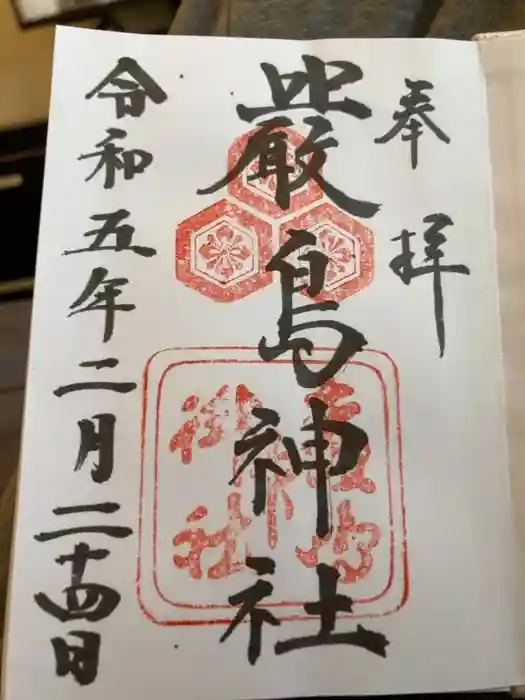 奉拝
嚴島神社
令和五年二月二十四日